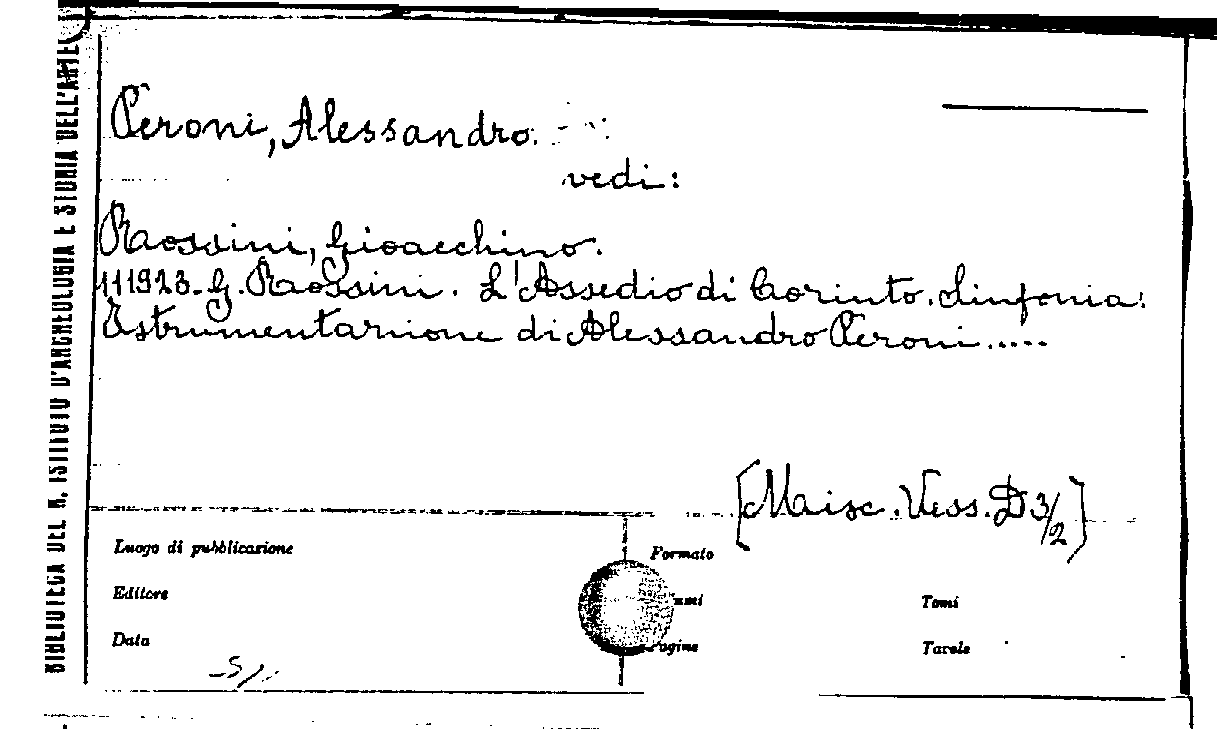 BIBLIOTECA DEL R. ISTITUTO D'ARCHEOLOGIA E STORIA DELL'ARTE
Peroni, Alessandro.
vedi:
Rossini, Gioacchino.
111923. G. Rossini. L'Assedio di Corinto. Sinfonia.
Istrumentazione di Alessandro Peroni.....
[Misc. Vess. D 3/2]
Luogo di pubblicazione
Formato
Editore
Tomi
Data
Pagine
Tavole